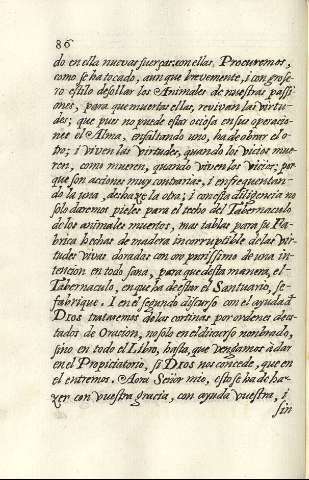 86
do en ella nuevas fuerças con ellas. Procuremos,
como se ha tocado, aunque brevemente, i con grose-
ro estilo desollar los Animales de nuestras passi-
ones, para que muertas ellas, revivan las virtu-
des; que pues no puede estar ociosa en sus operacio-
nes el Alma, enfaltando uno, ha de obrar el o-
tro; i viven las virtudes, quando los vicios mue-
ren, como mueren, quando viven los vicios; por
que son acciones muy contrarias, i enfrequentan-
do la una, deshaze la otra; i con esta diligencia no
solo daremos pieles para el techo del Tabernaculo
de los animales muertos, mas tablas para su Fa-
brica hechas de madera incorruptible de las vir-
tudes vivas doradas con oro purissimo de una in-
tencion en todo sana, para que desta manera, el-
Tabernaculo, en que ha de estar el Santuario, se-
fabrique. I en el segundo discurso con el ayuda đ
DIOS trataremos de las cortinas por ordenes de es-
tados de Oracion, no solo en el discurso nombrado,
sino en todo el Libro, hasta, que vengamos à dar
en el Propiciatorio, si DIOS nos concede, que en
el entremos. Aora Señor mio, esto se ha de ha-
zer con vuestra gracia, con ayuda vuestra, i
sin